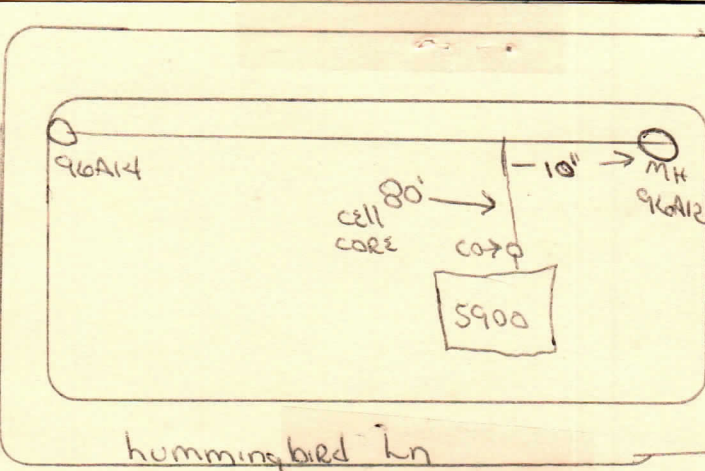 96A14
10"
MH
96A12
80'
CELL
CORE
CO
5900
hummingbird Ln